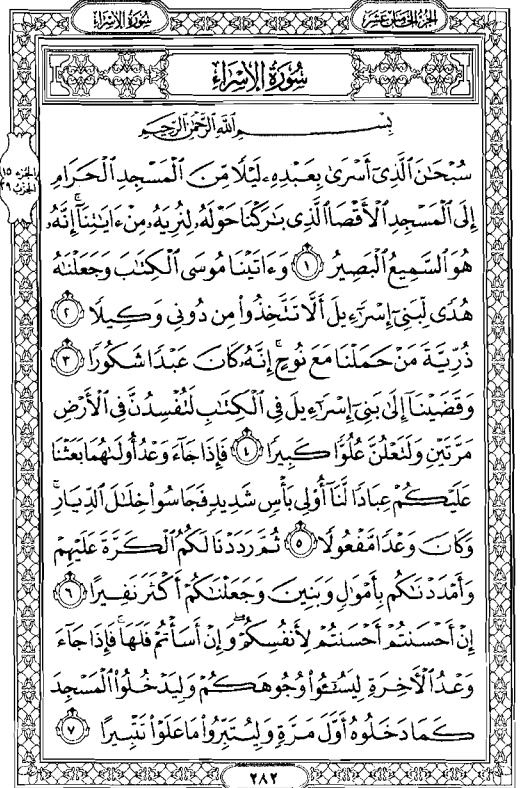 الجزء الخامس عشر
سورة الإسراء
سُورَةُ الإِسْرَاءِ
بِسْمِ اللَّهِ الرَّحْمَٰنِ الرَّحِيمِ
الجزء ١٥
الحزب ٢٩
سُبْحَٰنَ ٱلَّذِىٓ أَسْرَىٰ بِعَبْدِهِۦ لَيْلًا مِّنَ ٱلْمَسْجِدِ ٱلْحَرَامِ
إِلَى ٱلْمَسْجِدِ ٱلْأَقْصَا ٱلَّذِى بَٰرَكْنَا حَوْلَهُۥ لِنُرِيَهُۥ مِنْ ءَايَٰتِنَآ ۚ إِنَّهُۥ
هُوَ ٱلسَّمِيعُ ٱلْبَصِيرُ ١ وَءَاتَيْنَا مُوسَى ٱلْكِتَٰبَ وَجَعَلْنَٰهُ
هُدًى لِّبَنِىٓ إِسْرَٰٓءِيلَ أَلَّا تَتَّخِذُوا۟ مِن دُونِى وَكِيلًا ٢
ذُرِّيَّةَ مَنْ حَمَلْنَا مَعَ نُوحٍ ۚ إِنَّهُۥ كَانَ عَبْدًا شَكُورًا ٣
وَقَضَيْنَآ إِلَىٰ بَنِىٓ إِسْرَٰٓءِيلَ فِى ٱلْكِتَٰبِ لَتُفْسِدُنَّ فِى ٱلْأَرْضِ
مَرَّتَيْنِ وَلَتَعْلُنَّ عُلُوًّا كَبِيرًا ٤ فَإِذَا جَآءَ وَعْدُ أُولَىٰهُمَا بَعَثْنَا
عَلَيْكُمْ عِبَادًا لَّنَآ أُو۟لِى بَأْسٍ شَدِيدٍ فَجَاسُوا۟ خِلَٰلَ ٱلدِّيَارِ ۚ
وَكَانَ وَعْدًا مَّفْعُولًا ٥ ثُمَّ رَدَدْنَا لَكُمُ ٱلْكَرَّةَ عَلَيْهِمْ
وَأَمْدَدْنَٰكُم بِأَمْوَٰلٍ وَبَنِينَ وَجَعَلْنَٰكُمْ أَكْثَرَ نَفِيرًا ٦
إِنْ أَحْسَنتُمْ أَحْسَنتُمْ لِأَنفُسِكُمْ ۖ وَإِنْ أَسَأْتُمْ فَلَهَا ۚ فَإِذَا جَآءَ
وَعْدُ ٱلْءَاخِرَةِ لِيَسُۥٓـُٔوا۟ وُجُوهَكُمْ وَلِيَدْخُلُوا۟ ٱلْمَسْجِدَ
كَمَا دَخَلُوهُ أَوَّلَ مَرَّةٍ وَلِيُتَبِّرُوا۟ مَا عَلَوْا۟ تَتْبِيرًا ٧
٢٨٢